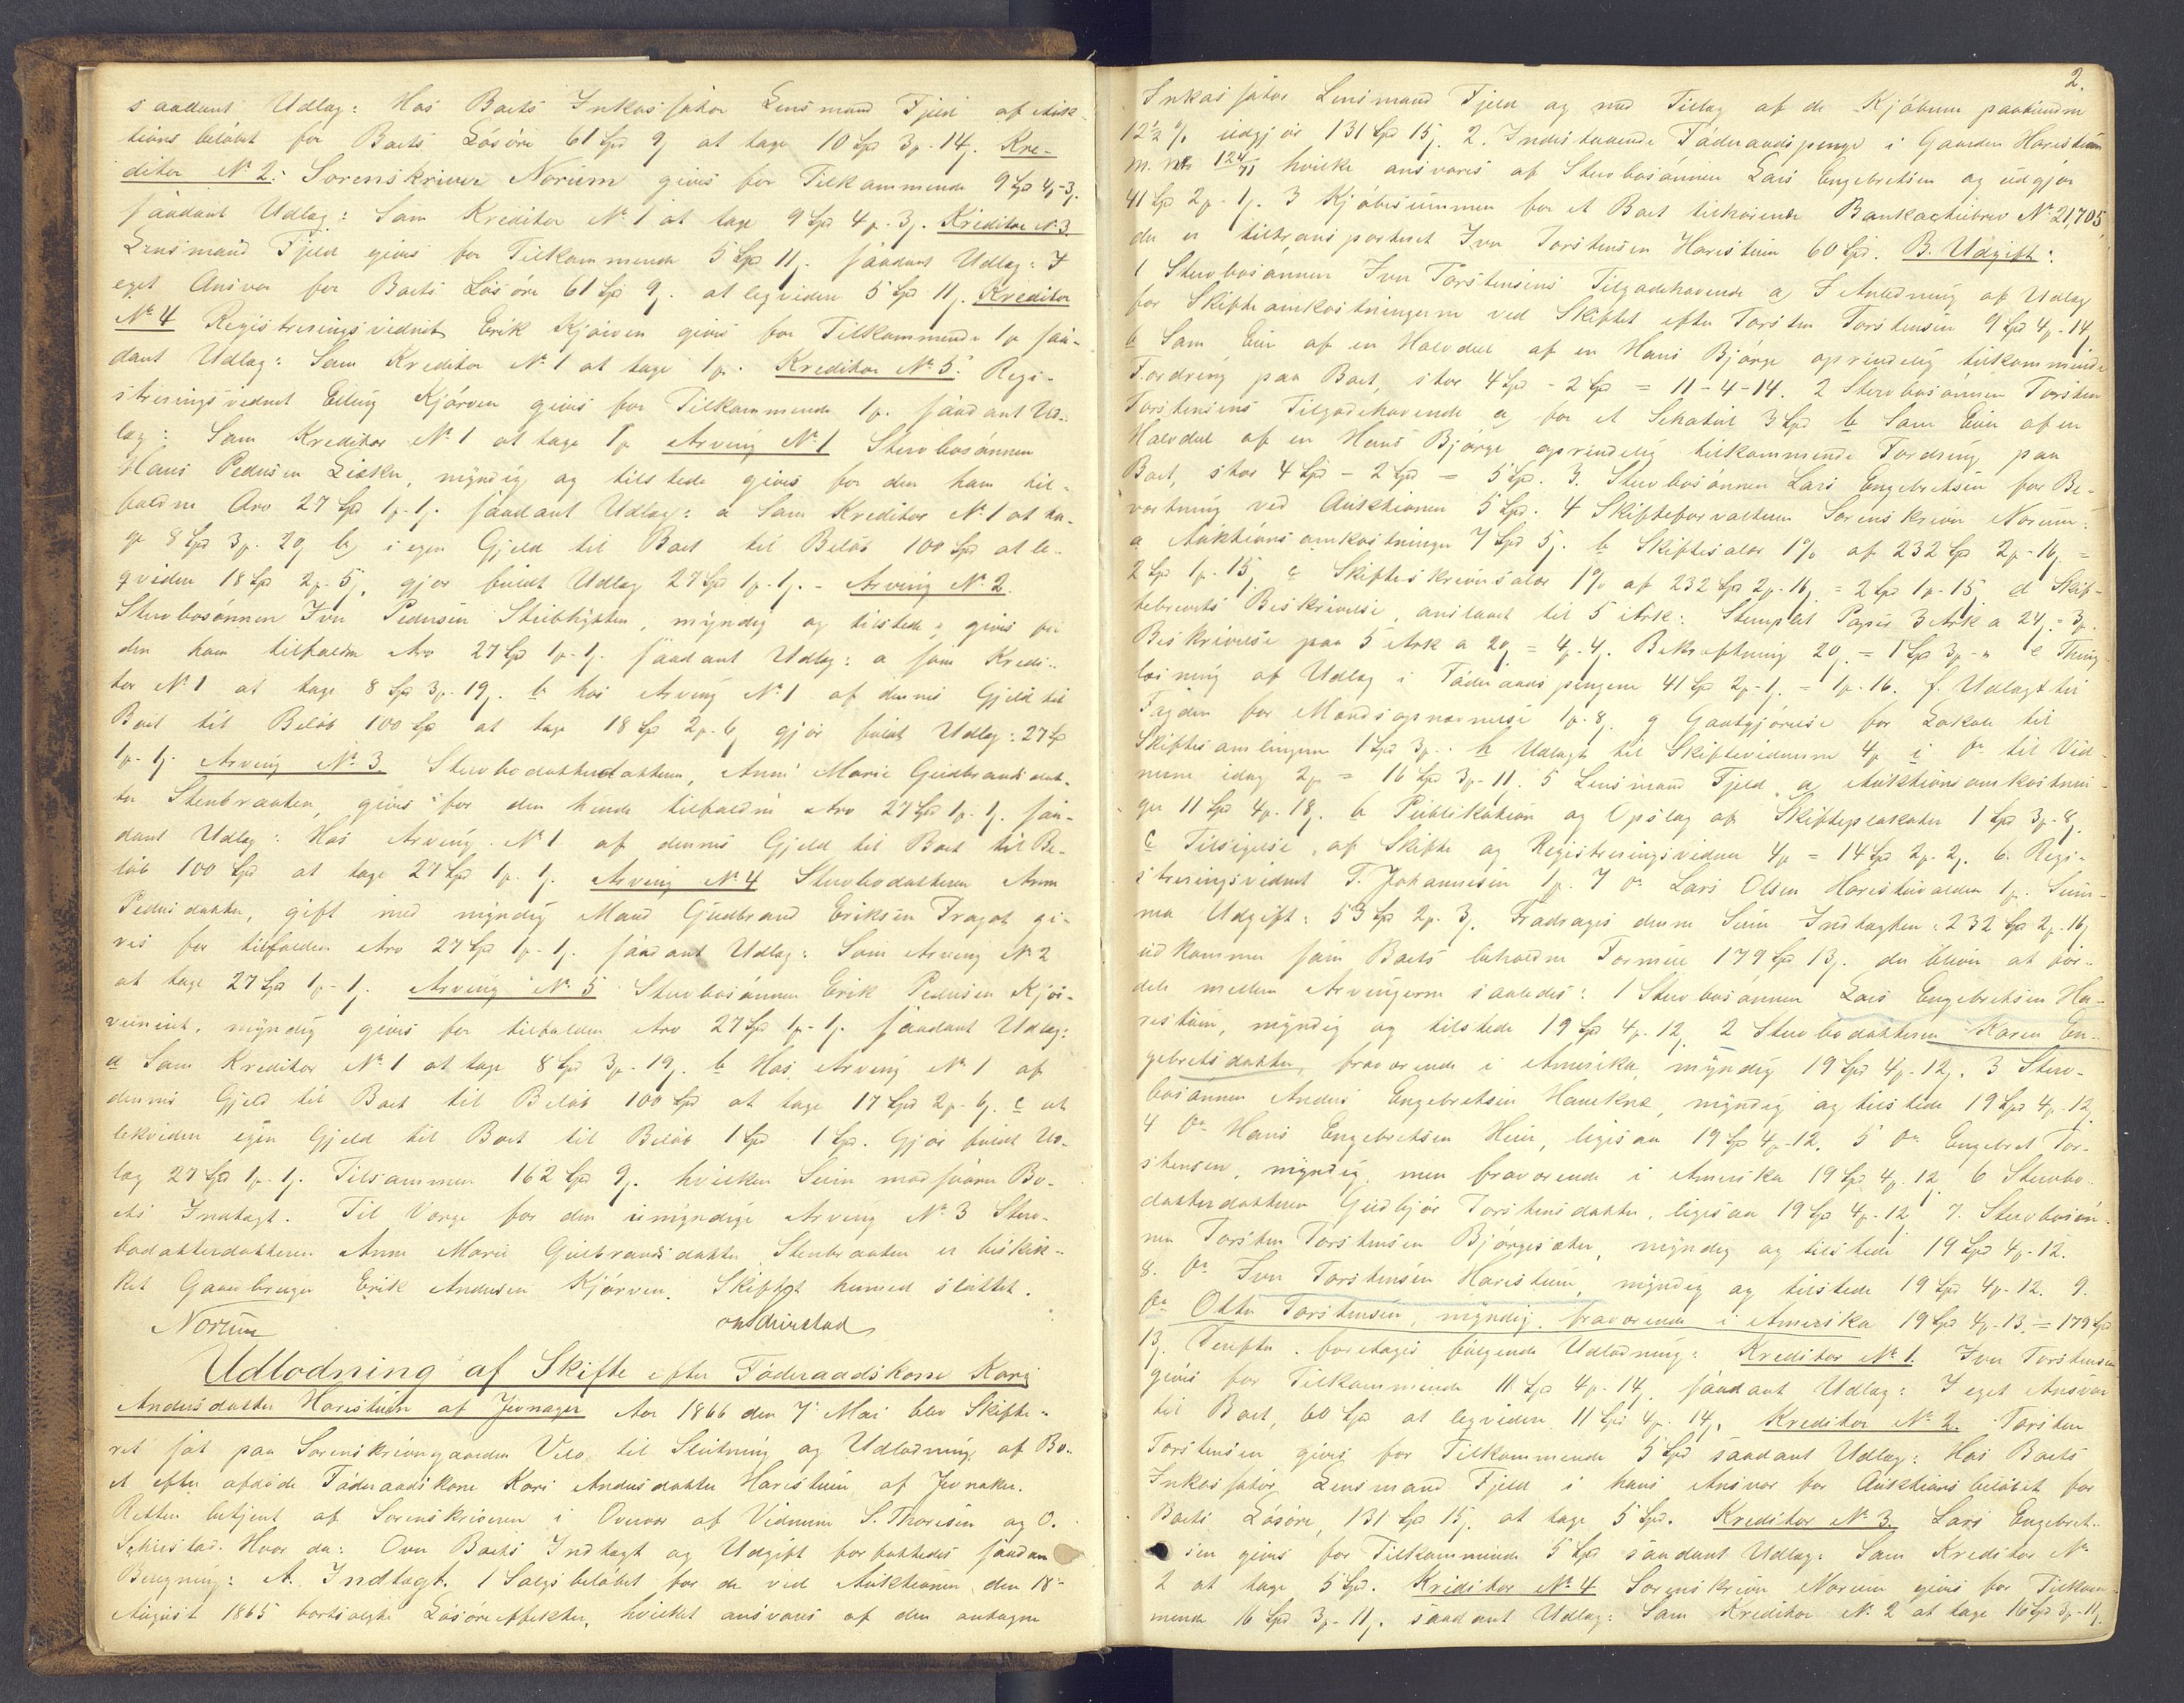 saadant Udlæg: Hos Boets Inkassator Lensmand Fjeld af Auk-
tionsbeløbet for Boets Løsøre 61 Spd 9 ß at tage 10 Spd 3 ƥ. 14 ß. Kre-
ditor No 2: Sorenskriver Norum gives for Tilkommende 9 Spd 4 ƥ - 3 ß.
saadant Udlæg: Som Kreditor No 1 at tage 9 Spd 4 ƥ. 3 ß. Kreditor No 3.
Lensmand Fjeld gives for Tilkommende 5 Spd 11 ß. saadant Udlæg: I
eget Ansvar for Boets Løsøre 61 Spd 9 ß. at leqvidere 5 Spd 11 ß. Kreditor
No 4 Registreringsvidnet Erik Kjørven gives for Tilkommende 1 ƥ saa-
dant Udlæg: Som Kreditor No 1 at tage 1 ƥ. Kreditor No 5: Regi-
streringsvidnet Elling Kjørven gives for Tilkommende 1 ƥ. saadant Ud-
læg: Som Kreditor No 1 at tage 1 ƥ Arving No 1 Stervbosønnen
Hans Pedersen Lieker, myndig og tilstede gives for den ham til-
faldne Arv 27 Spd 1 ƥ - 1 ß. saadant Udlæg: a Som Kreditor No 1 at ta-
ge 8 Spd 3 ƥ. 20 ß b, i egen Gjeld til Boet til Beløb 100 Spd at le-
qvidere 18 Spd 2 ƥ - 5 ß, gjør fuldt Udlæg 27 Spd 1 ƥ - 1 ß. - Arving No 2.
Stervbosønnen Iver Pedersen Stubhytten, myndig og tilstede, gives for
den ham tilfaldne Arv 27 Spd 1 ƥ - 1 ß. saadant Udlæg: a som Kredi-
tor No 1 at tage 8 Spd 3 ƥ. 19 ß. b hos Arving No 1 af dennes Gjeld til
Boet til Beløb 100 Spd at tage 18 Spd 2 ƥ - 6 ß gjør fuldt Udlæg: 27 Spd
1 ƥ - 1 ß. Arving No 3 Stervbodatterdatteren, Anne Marie Gudbrandsdat-
ter Stenbraaten, gives for den hende tilfaldne Arv 27 Spd 1 ƥ - 1 ß. saa-
dant Udlæg: Hos Arving No 1 af dennes Gjeld til Boet til Be-
løb 100 Spd at tage 27 Spd 1 ƥ - 1 ß. Arving No 4 Stervbodatteren Anne
Pedersdatter, gift med myndig Mand Gudbrand Eriksen Fragot gi-
ves for tilfalden Arv 27 Spd 1 ƥ - 1 ß. saadant Udlæg: Som Arving No 2
at tage 27 Spd 1 ƥ - 1 ß. Arving No 5 Stervbosønnen Erik Pedersen Kjør-
veneiet, myndig gives for tilfalden Arv 27 Spd 1 ƥ - 1 ß. saadant Udlæg:
a Som Kreditor No 1 at tage 8 Spd 3 ƥ - 19 ß. b Hos Arving No 1 af
dennes Gjeld til Boet til Beløb 100 Spd at tage 17 Spd 2 ƥ - 6 ß. c at
lekvidere egen Gjeld til Boet til Beløb 1 Spd 1 Spd. Gjør fuldt Ud-
læg 27 Spd 1 ƥ - 1 ß. Tilsammen 162 Spd 9 ß. hvilken Sum modsvarer Bo-
ets Indtægt. Til Værge for den umyndige Arving No 3 Sterv-
bodatterdatteren Anne Marie Gulbrandsdatter Stenbraaten er beskik-
ket Gaardbruger Erik Andersen Kjørven. Skiftet hermed sluttet.
Norum
Udlodning af Skifte efter Føderaadskone Kari
Andersdatter Harestuen af Jevnager Aar 1866 den 7de Mai blev Skifte-
ret sat paa Sorenskrivergaarden Velo til Slutning og Udlodning af Bo-
et efter afdøde Føderaadskone Kari Andersdatter Harestuen af Jevnaker.
Retten betjent af Sorenskriveren i Overvær af Vidnerne S. Thoresen og O.
Schiestad. Hvor da: Over Boets Indtægt og Udgift forfattedes saadan
Beregning: A. Indtægt. 1 Salgsbeløbet for de ved Auktionen den 18de
August 1865 bortsolgte Løsøreeffekter, hvilket ansvares af den antagne
2.
Inkassator Lensmand Fjeld og med Tillæg af de Kjøberne paabudne
12½ % udgjør 131 Spd 15 ß. 2. Indestaaende Føderaadspenge i Gaarden Harestuen
M. No 124/71 hvilke ansvares af Stervbosønnen Lars Engebretsen og udgjør
41 Spd 2 ƥ - 1 ß. 3 Kjøbesummen for et Boet tilhørende Bankactiebrev No 21,705,
der er tiltransporteret Iver Torstensen Harestuen 60 Spd. B. Udgift:
1 Stervbosønnen Iver Torstensens Tilgodehavende a, I Anledning af Udlæg
for Skifteomkostningerne ved Skiftet efter Torsten Torstensen 9 Spd 4 ƥ. 14
b Som Eier af en Halvdeel af en Hans Bjørge oprindelig tilkommende
Fordring paa Boet, stor 4 Spd - 2 Spd = 11 - 4 - 14. 2 Stervbosønnen Torsten
Torstensens Tilgodehavende a for et Schatul 3 Spd b Som Eier af en
Halvdeel af en Hans Bjørge oprindelig tilkommende Fordring paa
Boet, stor 4 Spd - 2 Spd = 5 Spd. 3. Stervbosønnen Lars Engebretsen for Be-
værtning ved Auktionen 5 Spd. 4 Skifteforvalteren Sorenskriver Norum:
a Auktionsomkostninger 7 Spd 5 ß. b Skiftesalær 1% af 232 Spd 2 ƥ - 16 ß =
2 Spd 1 ƥ. 15 c Skifteskriversalær 1% af 232 Spd 2 ƥ - 16 ß = 2 Spd 1 ƥ - 15 d Skif-
tebrevets Beskrivelse, anslaaet til 5 Ark: Stemplet Papir 3 Ark a 24 ß = 3 ƥ.
Beskrivelse paa 5 Ark a 20 ß = 4 ƥ - 4 ß. Bekræftning 20 ß = 1 Spd 3 ƥ - " e Thing-
læsning af Udlæg i Føderaadspengene 41 Spd 2 ƥ - 1 ß = 1 ƥ - 16. f. Udlagt til
Fogden for Mandsopnævnelse 1 ƥ - 8 ß. g Godtgjørelse for Lokale til
Skiftesamlingerne 1 Spd 3 ƥ. h Udlagt til Skiftevidnerne 4 ƥ i do til Vid-
nerne idag 2 ƥ = 16 Spd 3 ƥ - 11. 5 Lensmand Fjeld a, Auktionsomkostnin-
ger 11 Spd 4 ƥ - 18 ß. b Publikation og Opslag af Skifteplakater 1 Spd 3 ƥ - 8 ß.
c Tilsigelse af Skifte og Registreringsvidner 4 ƥ = 14 Spd 2 ƥ. 2 ß. 6. Regi-
streringsvidnet T. Johannesen 1 ƥ. 7 do Lars Olsen Harestuvalden 1 ƥ. Sum-
ma Udgift: 53 Spd 2 ƥ. 3 ß. Fradrages denne Sum Indtægten: 232 Spd 2 ƥ - 16 ß
udkommer som Boets beholdne Formue 179 Spd 13 ß. der bliver at for-
dele mellem Arvingerne saaledes: 1 Stervbosønnen Lars Engebretsen Ha-
restuen, myndig og tilstede 19 Spd 4 ƥ - 12. 2 Stervbodatteren Karen En-
gebretsdatter, fraværende i Amerika, myndig 19 Spd 4 ƥ - 12 ß. 3 Sterv-
bosønnen Anders Engebretsen Hauekne, myndig og tilstede 19 Spd 4 ƥ - 12 ß
4 do Hans Engebretsen Heier, ligesaa 19 Spd 4 ƥ - 12. 5 do Engebret Tor-
stensen, myndig, men fraværende i Amerika 19 Spd 4 ƥ. 12 6 Stervbo-
datterdatteren Gudbjør Torstensdatter, ligesaa 19 Spd 4 ƥ - 12. 7. Stervbosøn-
nen Torsten Torstensen Bjørgesæter, myndig og tilstede 19 Spd 4 ƥ - 12.
8. do Iver Torstensen Harestuen, myndig og tilstede 19 Spd 4 ƥ - 12. 9.
do Otter Torstensen, myndig, fraværende i Amerika 19 Spd 4 ƥ - 13. = 179 Spd
13 ß. Derefter foretages følgende Udlodning: Kreditor No 1. Iver Torstensen
gives for Tilkommende 11 Spd 4 ƥ - 14 ß. saadant Udlæg: I eget Ansvar
til Boet, 60 Spd at leqvidere 11 Spd 4 ƥ. 14 ß. Kreditor No 2. Torsten
Torstensen gives for Tilkommende 5 Spd saadant Udlæg: Hos Boets
Inkassator, Lensmand Fjeld i hans Ansvar for Auktionsbeløbet for
Boets Løsøre, 131 Spd 15 ß. at tage 5 Spd. Kreditor No 3. Lars Engebret-
sen gives for Tilkommende 5 Spd saadant Udlæg: Som Kreditor No
2 at tage 5 Spd. Kreditor No 4 Sorenskriver Norum gives for Tilkom-
mende 16 Spd 3 ƥ - 11 ß. saadant Udlæg: Som Kreditor No 2 at tage 16 Spd 3 ƥ - 11 ß.